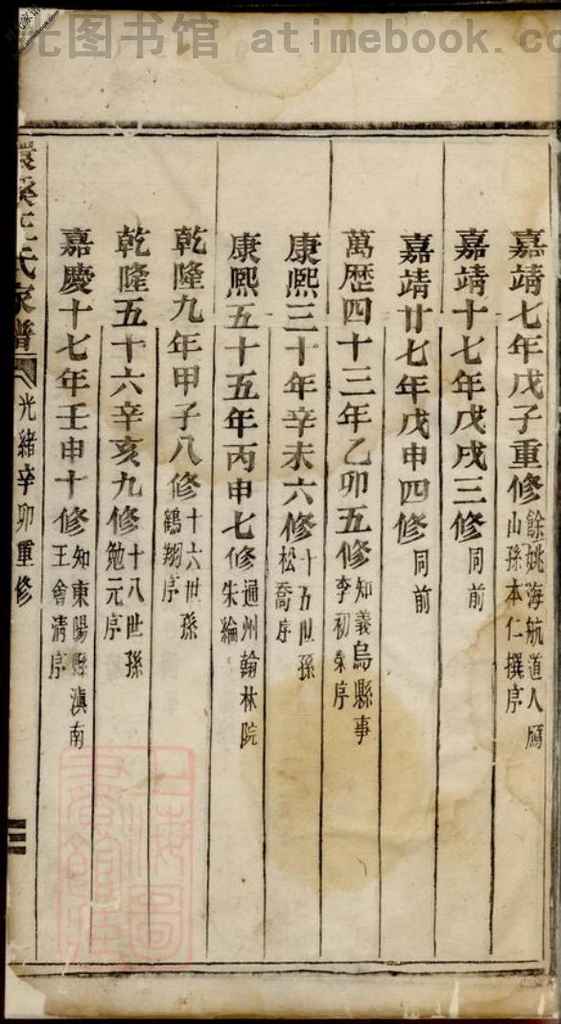 光图书馆 atimebook.co
嘉靖七年戊子重修餘姚海航道人厲山孫本仁撰序
嘉靖十七年戊戌三修同前
嘉靖廿七年戊申四修同前
萬歷四十三年乙卯五修知義烏縣事李初春序
康熙三十年辛未六修十五世孫松喬序
康熙五十五年丙申七修通州翰林院朱綸
乾隆九年甲子八修十六世孫鶴翔序
乾隆五十六辛亥九修十八世孫勉元序
嘉慶十七年壬申十修知東陽縣滇南王會清序
溪王氏家譜 光緒辛卯重修 二